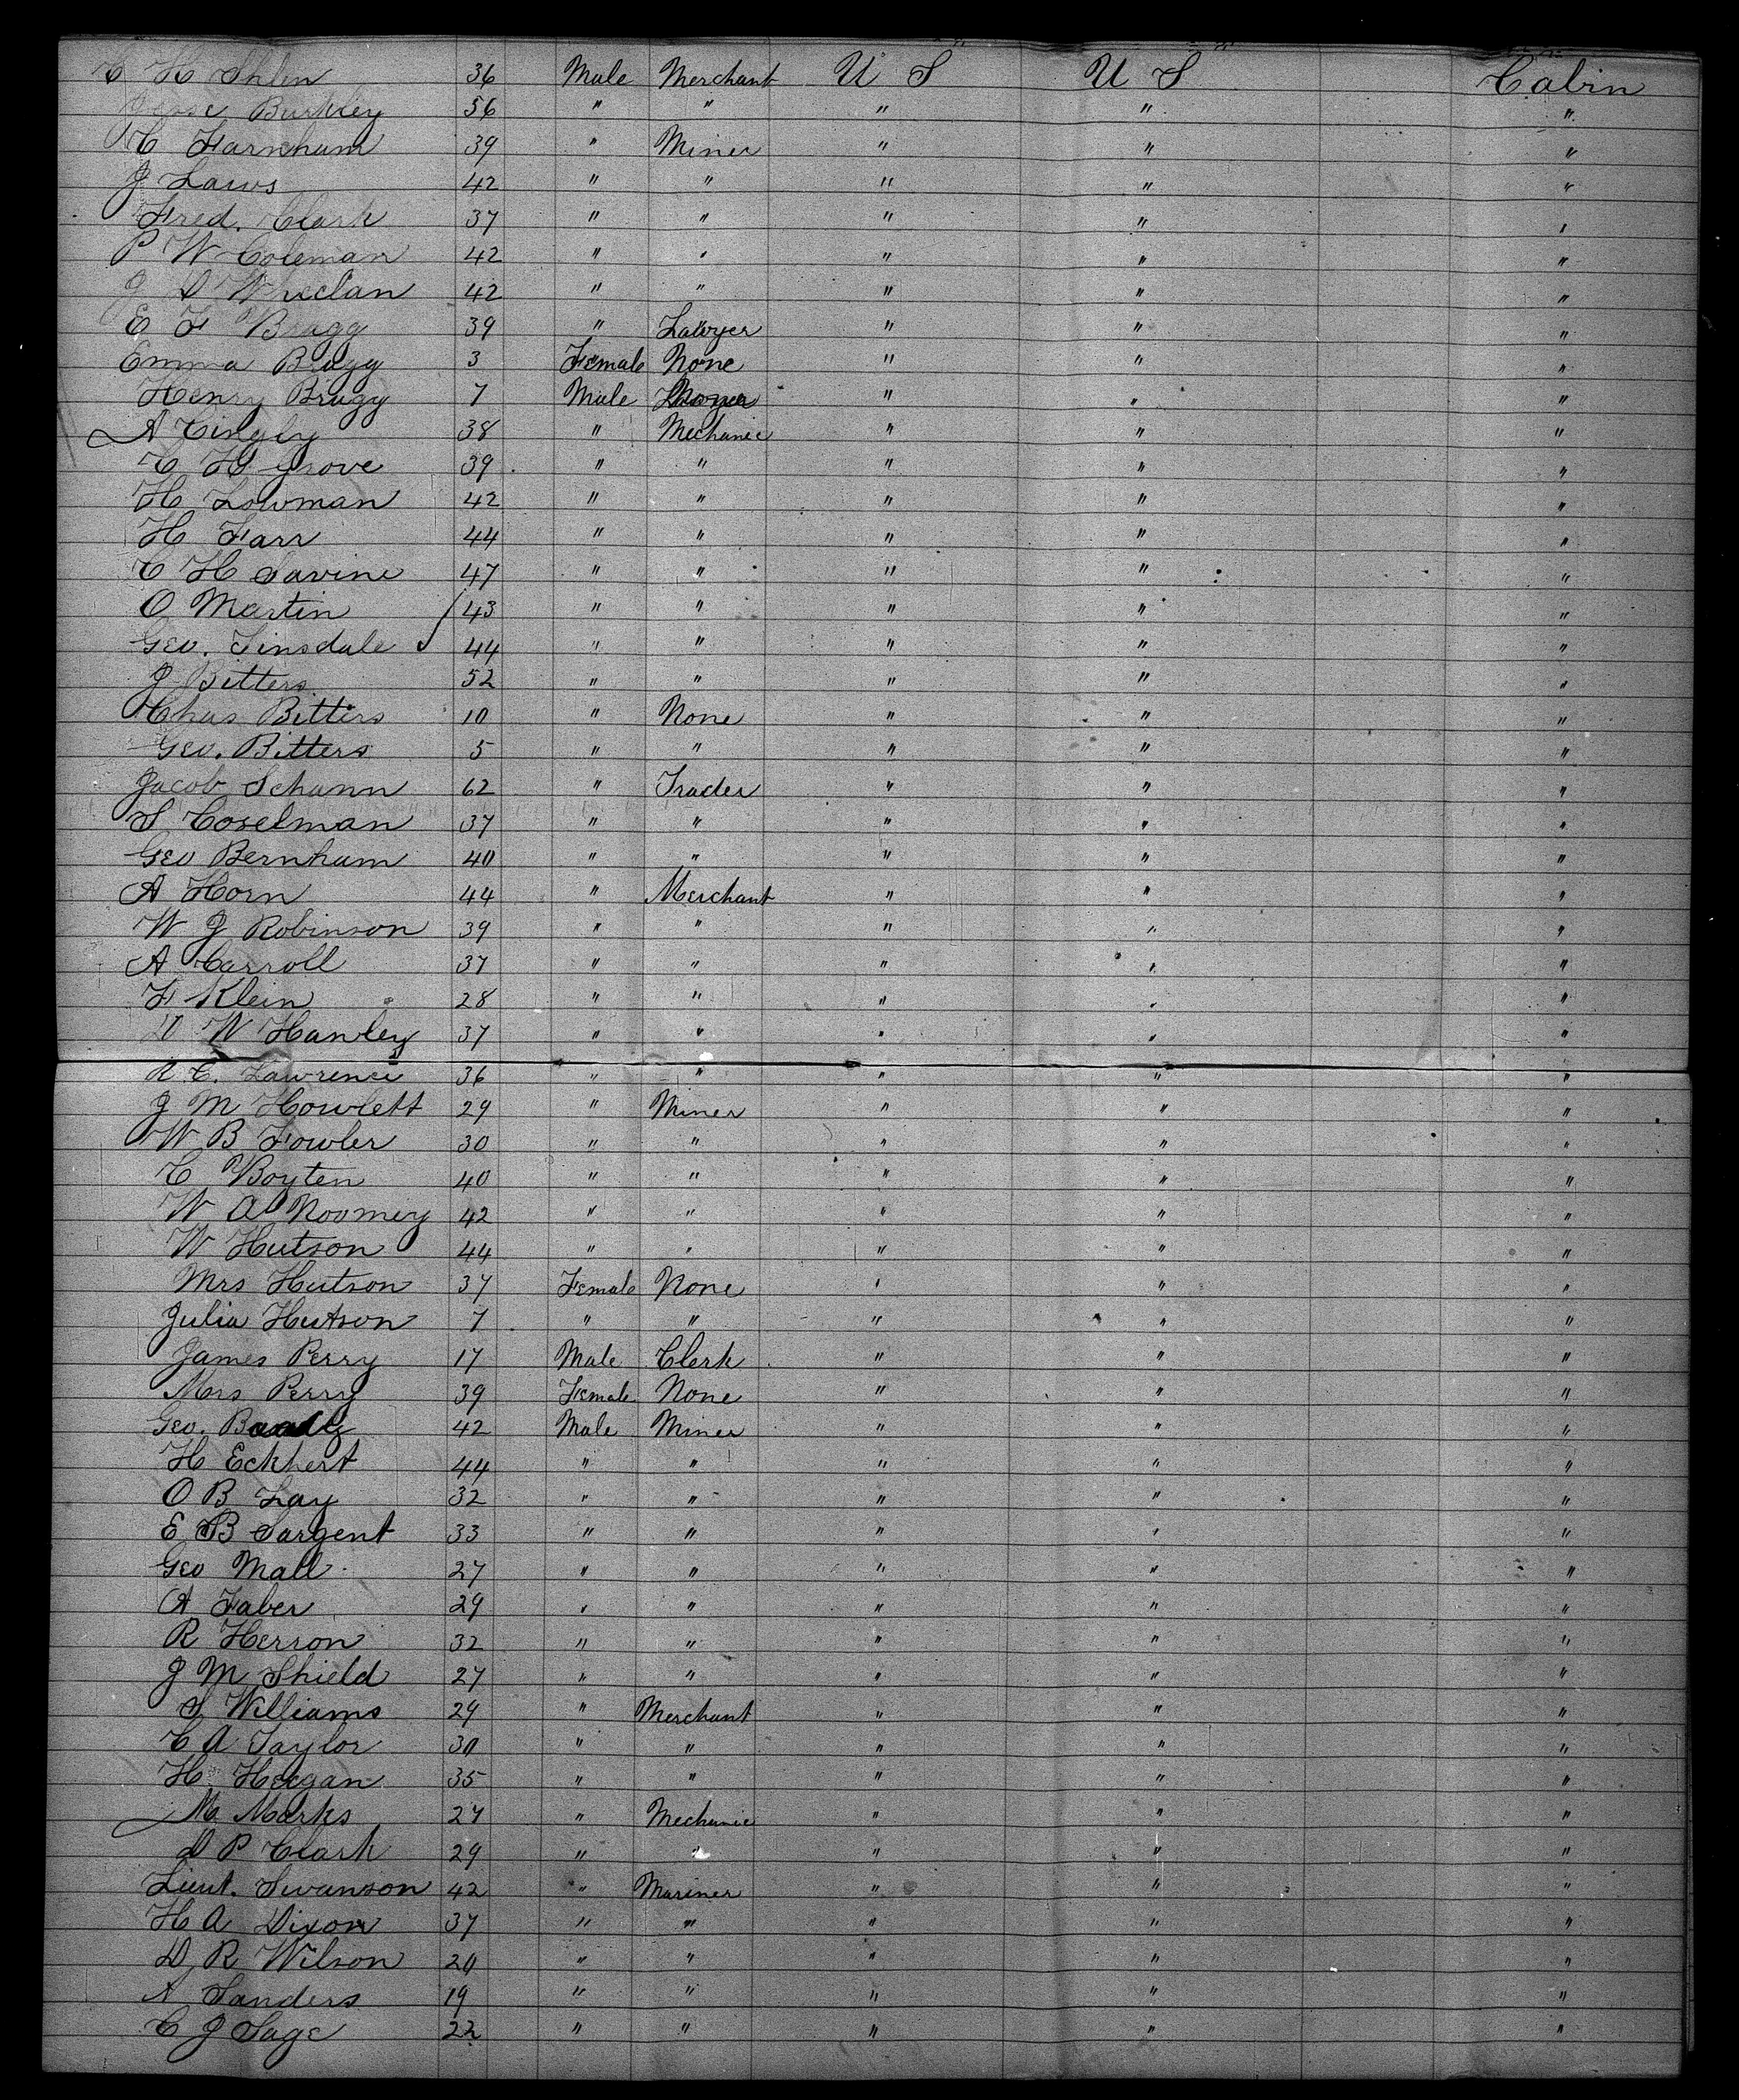 C H Ihlen 36 Male Merchant U S U S Cabin
Jesse Burkley 56 " " " " "
C Farnham 39 " Miner " " "
J Laws 42 " " " " "
Fred. Clark 37 " " " " "
P W Coleman 42 " " " " "
J D Wheclan 42 " " " " "
E F Bragg 39 " Lawyer " " "
Emma Bragg 3 Female None " " "
Henry Bragg 7 Male " " "
A Cingly 38 " Mechanic " " "
C H Grove 39 " " " " "
H Lowman 42 " " " " "
H Farr 44 " " " " "
C H Savine 47 " " " " "
O Martin 43 " " " " "
Geo. Tinsdale 44 " " " " "
J Bitters 52 " " " " "
Chas Bitters 10 " None " " "
Geo. Bitters 5 " " " " "
Jacob Schann 62 " Trader " " "
S Coselman 37 " " " " "
Geo Bernham 40 " " " " "
A Horn 44 " Merchant " " "
W J Robinson 39 " " " " "
A Carroll 37 " " " " "
F Klein 28 " " " " "
D W Hawley 37 " " " " "
R C. Lawrence 36 " " " " "
J M Howlett 29 " Miner " " "
W B Fowler 30 " " " " "
C Boyten 40 " " " " "
W A Noomey 42 " " " " "
W Hutson 44 " " " " "
Mrs Hutson 37 Female None " " "
Julia Hutson 7 " " " " "
James Perry 17 Male Clerk " " "
Mrs Perry 39 Female None " " "
Geo. 42 Male Miner " " "
H Eckhert 44 " " " " "
O B Lay 32 " " " " "
E B Sargent 33 " " " " "
Geo Mall 27 " " " " "
A Faber 29 " " " " "
R Herron 32 " " " " "
J M Shield 27 " " " " "
S Williams 29 " Merchant " " "
C A Taylor 30 " " " " "
H. Heegan 35 " " " " "
M Marks 27 " Mechanic " " "
D P Clark 29 " " " " "
Lieut. Swanson 42 " Mariner " " "
H A Dixon 37 " " " " "
D R Wilson 20 " " " " "
A Sanders 19 " " " " "
C J Sage 22 " " " " "